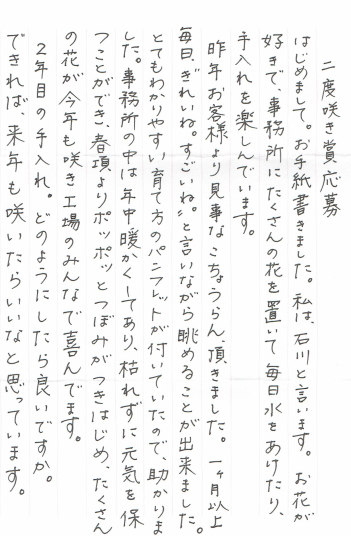 二度咲き賞応募
はじめまして。お手紙書きました。私は、石川と言います。お花が
好きで、事務所にたくさんの花を置いて毎日水をあけたり、
手入れを楽しんでいます。
昨年お客様より見事なこちょうらん、頂きました。一ヶ月以上
毎日〝きれいね。すごいね。〟と言いながら眺めることが出来ました。
とてもわかりやすい育て方のパンフレットが付いていたので、助かりま
した。事務所の中は年中暖かくしてあり、枯れずに元気を保
つことができ、春頃よりポッポッとつぼみがつきはじめ、たくさん
の花が今年も咲き工場のみんなで喜んでます。
2年目の手入れ。どのようにしたら良いですか。
できれば、来年も咲いたらいいなと思っています。